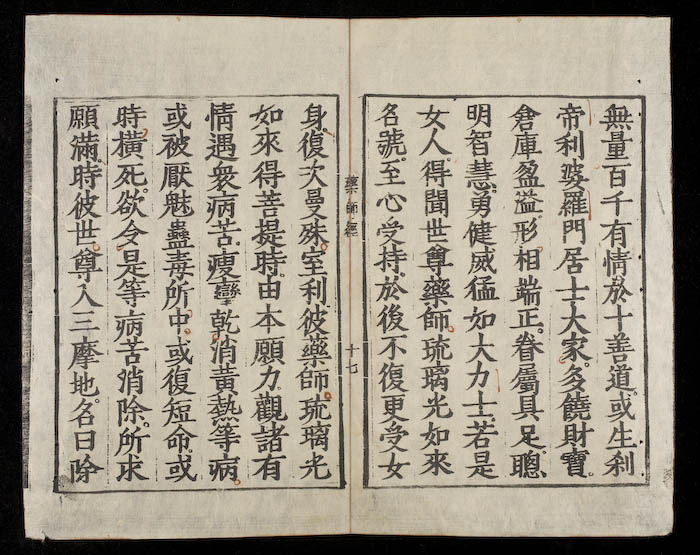 無量百千有情。於十善道。或生刹
帝利婆羅門居士大家。多饒財寶。
倉庫盈溢。形相端正。眷屬具足。聰
明智慧。勇健威猛如大力士。若是
女人。得聞世尊藥師琉璃光如來
名號。至心受持。於後不復更受女
藥師經
十七
身。復次曼殊室利彼藥師琉璃光
如來得菩提時。由本願力。觀諸有
情遇衆病苦。瘦𤼣乾消黃熱等病。
或被厭魅蠱毒所中。或復短命。或
時橫死。欲令是等病苦消除。所求
願滿。時彼世尊入三摩地。名曰除